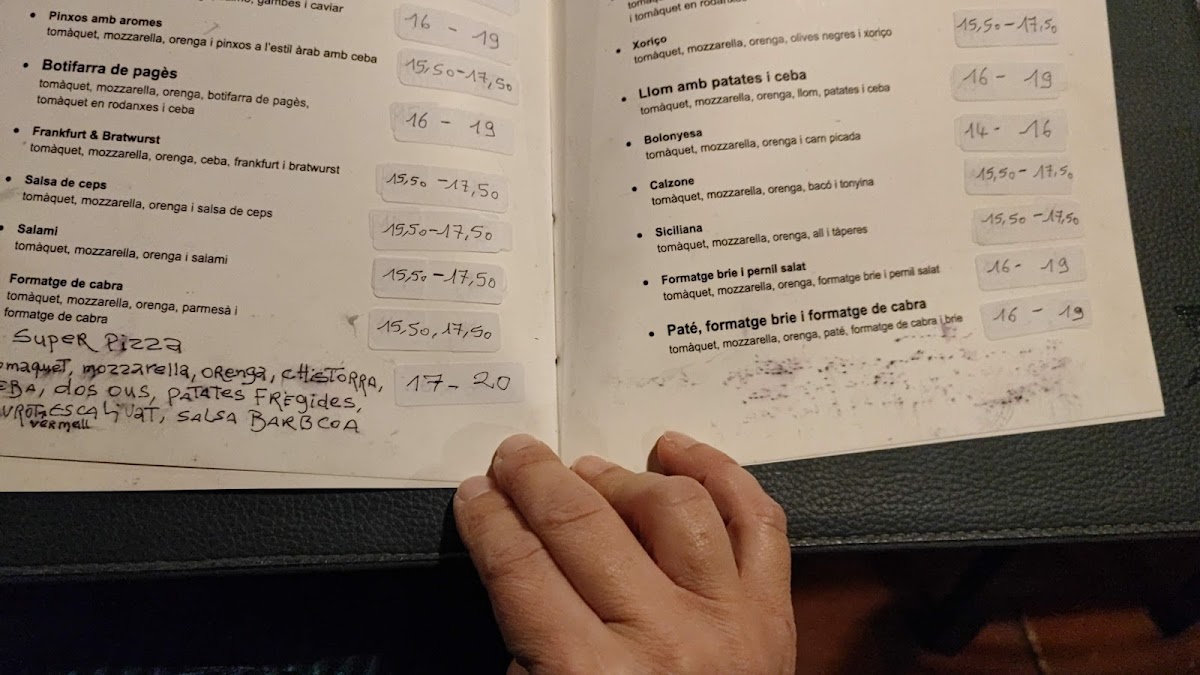 gambes i caviar
Pinxos amb aromes
tomàquet, mozzarella, orenga i pinxos a l'estil àrab amb ceba
16 - 19
Botifarra de pagès
tomàquet, mozzarella, orenga, botifarra de pagès,
tomàquet en rodanxes i ceba
15,50-17,50
Frankfurt & Bratwurst
tomàquet, mozzarella, orenga, ceba, frankfurt i bratwurst
16 - 19
Salsa de ceps
tomàquet, mozzarella, orenga i salsa de ceps
15,50-17,50
Salami
tomàquet, mozzarella, orenga i salami
15,50-17,50
Formatge de cabra
tomàquet, mozzarella, orenga, parmesà i
formatge de cabra
15,50-17,50
15,50,17,50
SUPER PIZZA
omaquet, mozzarella, ORENGA, CHISTORRA,
EBA, dos ous, PATATES FREGIDES,
ESCALIVAT, SALSA BARBCOA
vermell
17-20
i tomàquet en
Xoriço
tomàquet, mozzarella, orenga, olives negres i xoriço
15,50-17,50
Llom amb patates i ceba
tomàquet, mozzarella, orenga, llom, patates i ceba
16 - 19
Bolonyesa
tomàquet, mozzarella, orenga i carn picada
14 - 16
Calzone
tomàquet, mozzarella, orenga, bacó i tonyina
15,50-17,50
Siciliana
tomàquet, mozzarella, orenga, all i tàperes
15,50-17,50
Formatge brie i pernil salat
tomàquet, mozzarella, orenga, formatge brie i pernil salat
16 - 19
Paté, formatge brie i formatge de cabra
tomàquet, mozzarella, orenga, paté, formatge de cabra i brie
16 - 19